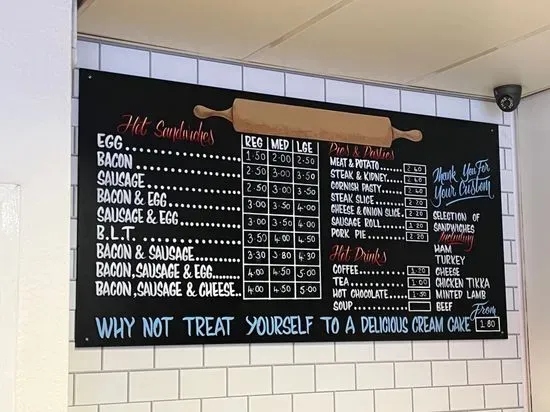 Hot Sandwiches
REG MED LGE
EGG 1.50 2.00 2.50
BACON 2.50 3.00 3.50
SAUSAGE 2.50 3.00 3.50
BACON & EGG 3.00 3.50 4.00
SAUSAGE & EGG 3.00 3.50 4.00
B.L.T. 3.50 4.00 4.50
BACON & SAUSAGE 3.30 3.80 4.30
BACON, SAUSAGE & EGG 4.00 4.50 5.00
BACON, SAUSAGE & CHEESE 4.00 4.50 5.00
Pies & Pasties
MEAT & POTATO 2.40
STEAK & KIDNEY 2.40
CORNISH PASTY 2.40
STEAK SLICE 2.40
CHEESE & ONION SLICE
SAUSAGE ROLL
PORK PIE 2.20
Hot Drinks
COFFEE 1.20
TEA 1.00
HOT CHOCOLATE
SOUP
Thank You For
Your Custom
SELECTION OF
SANDWICHES
Including
HAM
TURKEY
CHEESE
CHICKEN TIKKA
MINTED LAMB
BEEF
WHY NOT TREAT YOURSELF TO A DELICIOUS CREAM CAKE From 1.80